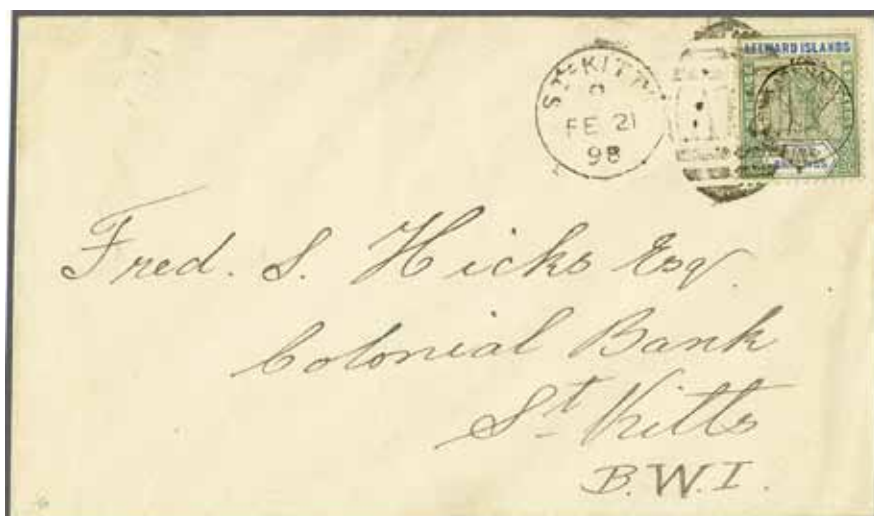 ST. KITTS
FE 21
98
LEEWARD ISLANDS
Fred. S. Hicks Esq.
Colonial Bank
St. Kitts
B.W.I.